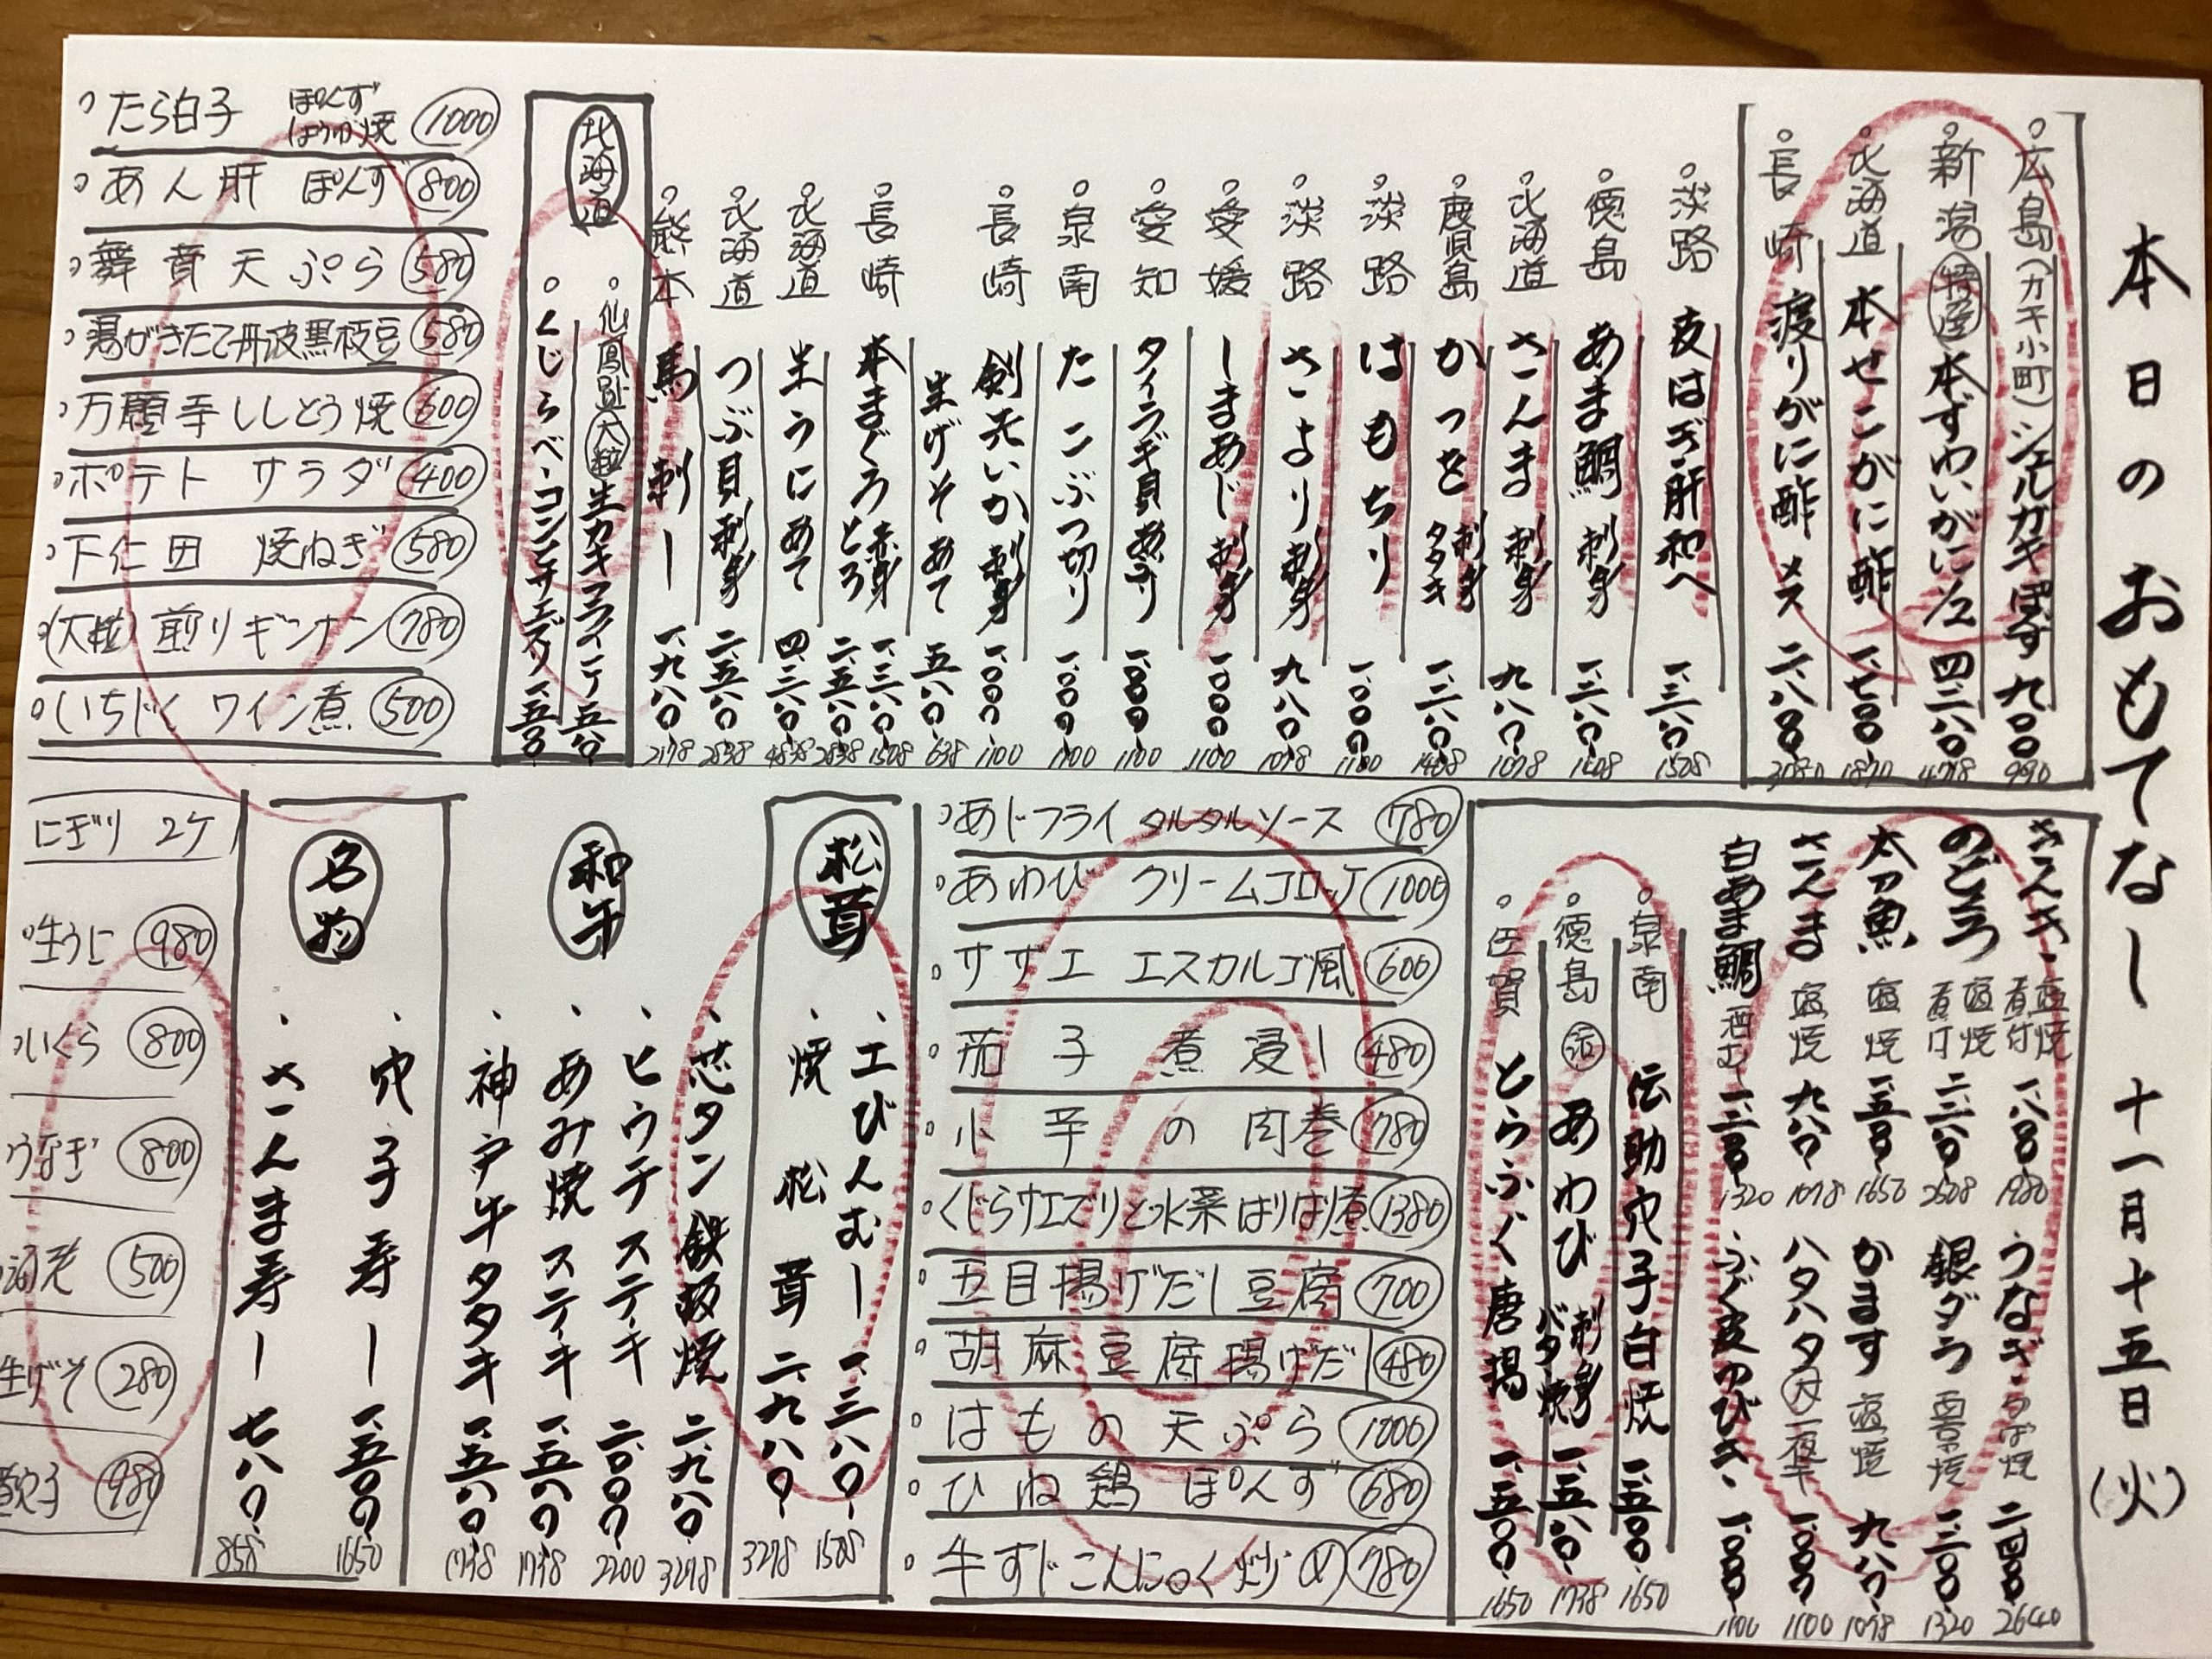 本日のおもてなし 十一月十五日(火)
広島(カキ小町)シェルガキぽんず 九〇〇 990
新潟 特選 本ずわいがに1/2 四三八〇 4718
北海道 本せこがに酢 一、七〇〇 1870
長崎 渡りがに酢 メス 二、八〇〇 3080
淡路 皮はぎ肝和へ 一、三八〇 1508
徳島 あま鯛 刺身 一、三八〇 1408
北海道 さんま 刺身 九八〇 1078
鹿児島 かつを 刺身 タタキ 一、二八〇 1408
淡路 はもちり 一、〇〇〇 1100
淡路 さより 刺身 九八〇 1078
愛媛 しまあじ 刺身 一、〇〇〇 1100
愛知 タイラギ貝 あぶり 一、〇〇〇 1100
泉南 たこぶつ切り 一、〇〇〇 1100
長崎 剣先いか 刺身 一、〇〇〇 1100
生げそあて 五八〇 638
長崎 本まぐろ 赤身 一、三八〇 1508
とろ 二、五八〇 2838
北海道 生うにあて 四、三八〇 4838
北海道 つぶ貝 刺身 二、五八〇 2838
熊本 馬刺し 一、九八〇 2178
北海道
仙鳳趾 大粒 生カキフライ 一ケ 五八〇
くじらベーコン サエズリ 一、五〇〇
たら白子 ぽんず ほうば焼 1000
あん肝 ぽんず 800
舞茸天ぷら 580
湯がきたて丹波黒枝豆 580
万願寺ししとう焼 600
ポテトサラダ 400
下仁田 焼ねぎ 580
(大粒)煎りギンナン 780
いちじくワイン煮 500
すずき 塩焼 煮付 一、八〇〇 1980
のどぐろ 塩焼 煮付 二、二八〇 2508
太刀魚 塩焼 一、五〇〇 1650
さんま 塩焼 九八〇 1078
白あま鯛 酒むし 一、二〇〇 1320
うなぎ 二、四〇〇 2640
銀ダラ 西京焼 一、二〇〇 1320
かます 塩焼 九八〇 1078
ハタハタ 大 一夜干 一、〇〇〇 1100
ふぐ皮ゆびき 一、〇〇〇 1100
泉南 伝助穴子白焼 一、五〇〇 1650
徳島 活 あわび 刺身 バター焼 一、五八〇 1738
とらふぐ唐揚 一、五〇〇 1650
あじフライ タルタルソース 780
あわび クリームコロッケ 1000
サザエ エスカルゴ風 600
茄子煮浸し 480
小芋の肉巻 780
くじらサエズリと水菜はりはり煮 1380
五目揚げだし豆腐 700
胡麻豆腐揚げだし 480
はもの天ぷら 1000
ひね鶏ぽんず 680
牛すじこんにゃく炒め 780
松茸
土びんむし 一、三八〇 1508
焼松茸 二、九八〇 3278
和牛
芯タン鉄板焼 二、九八〇 3278
ヒウチステーキ 二、〇〇〇 2200
あみ焼ステーキ 一、五八〇 1738
神戸牛タタキ 一、五八〇 1738
名物
穴子寿し 一、五〇〇 1650
さんま寿し 七八〇 858
にぎり 2ケ
生うに 980
いくら 800
うなぎ 800
500
生げそ 280
煮穴子 980